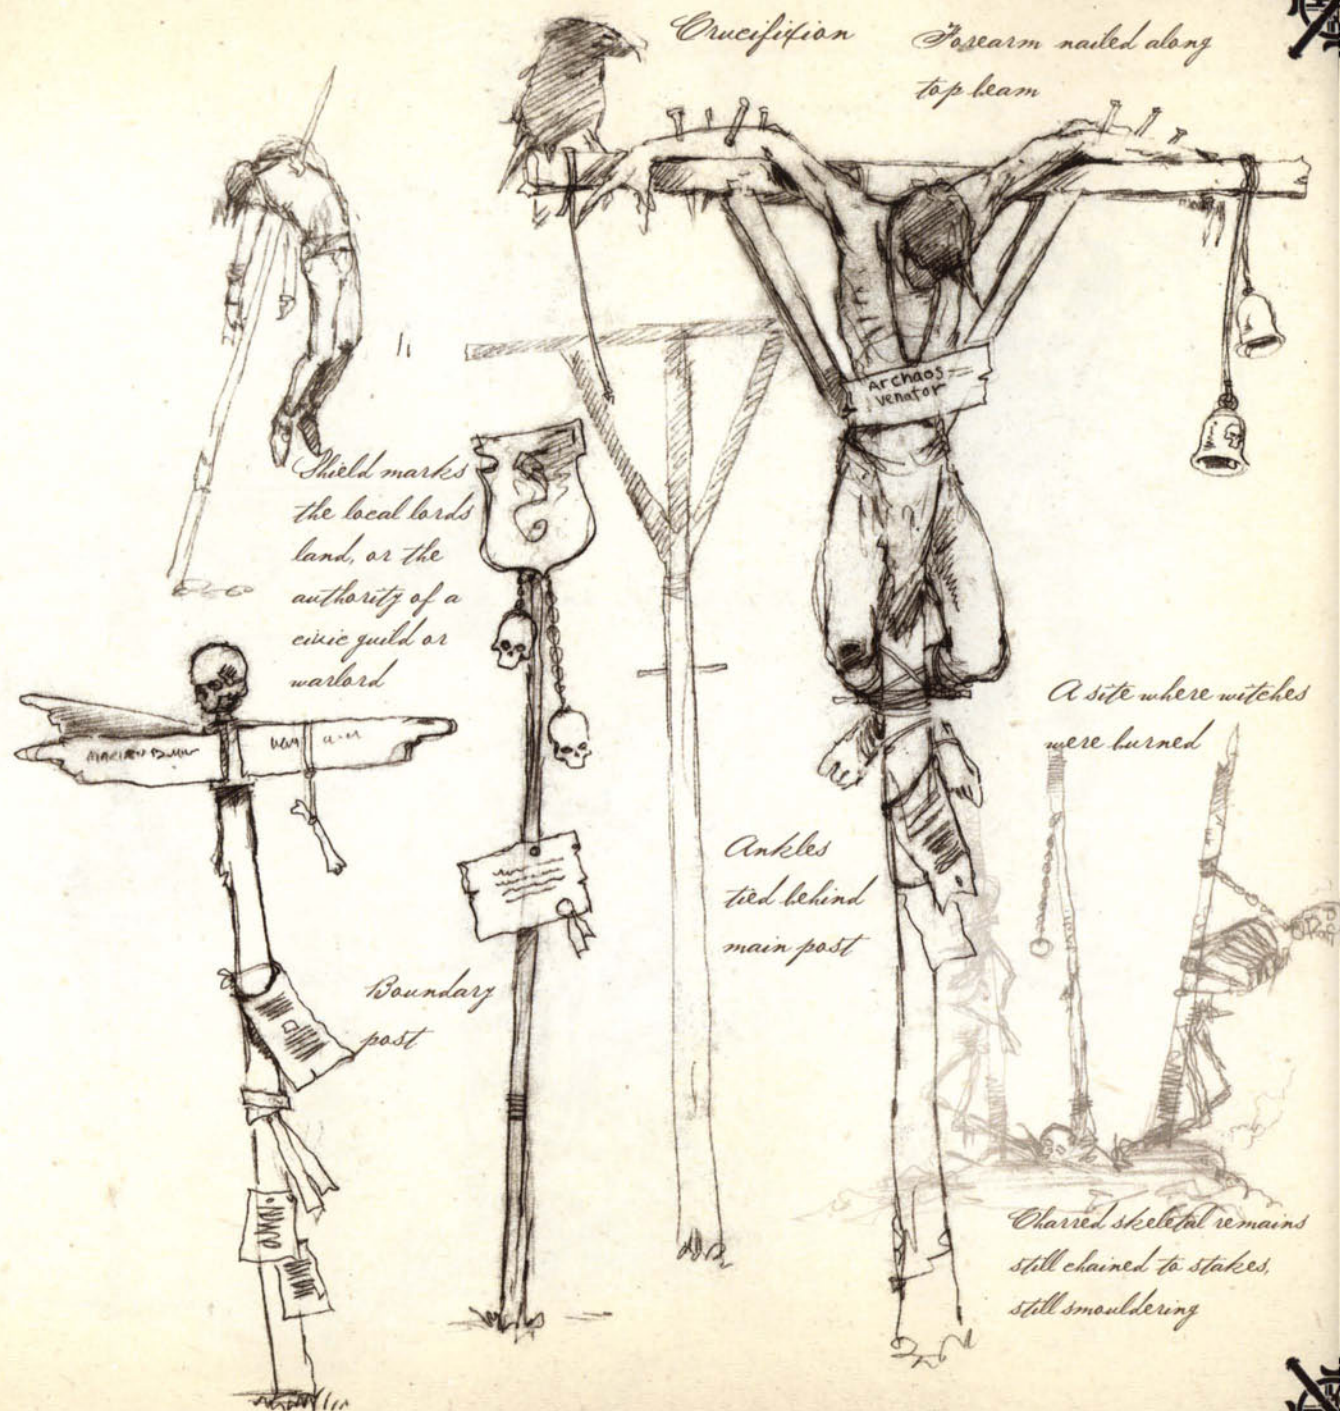 Crucifixion
Forearm nailed along
top beam
Archaos
Venator
Shield marks
the local lords
land, or the
authority of a
civic guild or
warlord
A site where witches
were burned
Ankles
tied behind
main post
Boundary
post
Charred skeletal remains
still chained to stakes,
still smouldering